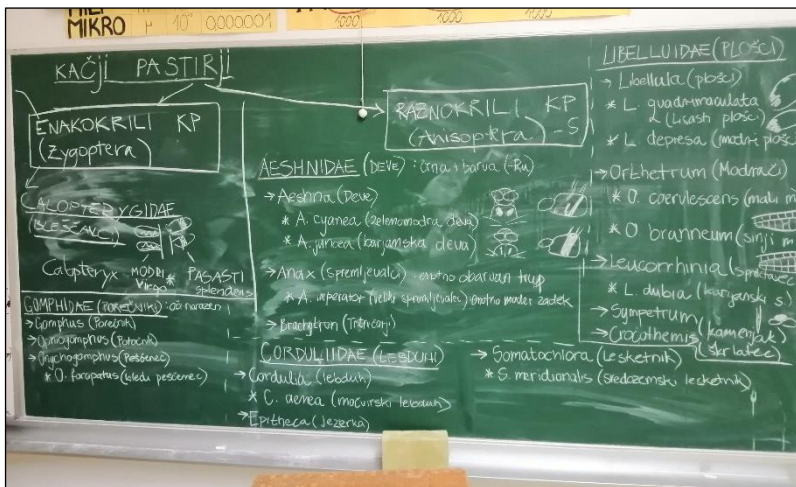 MIKRO μ 0,000001
1000 1000
KAČJI PASTIRJI
ENAKOKRILI KP
(Zygoptera)
RAZNOKRILI KP
(Anisoptera) -S
CALOPTERYGIDAE
(BLEŠČAVC)
Calopteryx MODRI * PASASTI
Virgo splendens
GOMPHIDAE (POREČNIKI): oči narazen
→ Gomphus (Porečnik)
→ Ophiogomphus (Potočnik)
→ Onychogomphus (Peščenec)
* O. forcipatus (bledi peščenec)
AESHNIDAE (DEVE): črna + barva (-Ru)
→ Aeshna (Deve)
* A. cyanea (zelenomodra deva)
* A. juncea (barjanska deva)
→ Anax (spremljevalci) - enotno obarvan trup
* A. imperator (veliki spremljevalec) enotno moder zadek
→ Brachytron (Trstničarji)
CORDULIIDAE (LEBDUHI)
→ Cordulia (lebduh)
* C. aenea (močvirski lebduh)
→ Epitheca (Jezerka)
→ Somatochlora (Lesketnik)
* S. meridionalis (sredozemski lesketnik)
LIBELLUIDAE (PLOŠCI)
→ Libellula (plošci)
* L. quadrimaculata
(Lisasti plošči)
* L. depresa (modri plošč
→ Orthetrum (Modrači)
* O. coerulescens (mali m
* O. brunneum (sinji m
→ Leucorrhinia (spreletavec
* L. dubia (barjanski s)
→ Sympetrum (kamenjak)
→ Crocothemis (škrlatec)